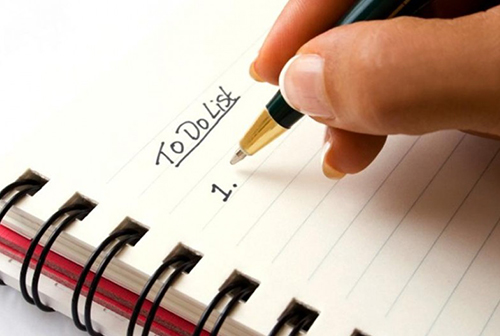 To Do List
1.